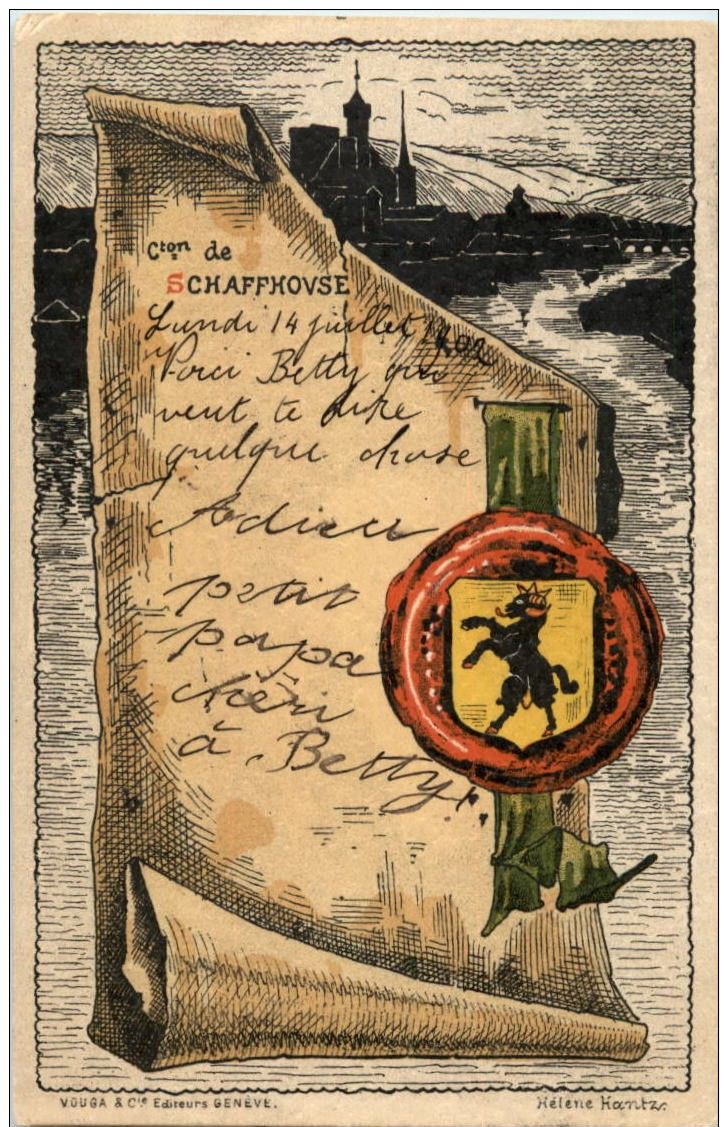 Cton de
SCHAFFHOVSE
Lundi 14 juillet 1902
Voici Betty qui
veut te dire
quelque chose
Adieu
petit
papa
chéri
à Betty.
VOUGA & Cie Editeurs GENÈVE.
Hélène Hantz.